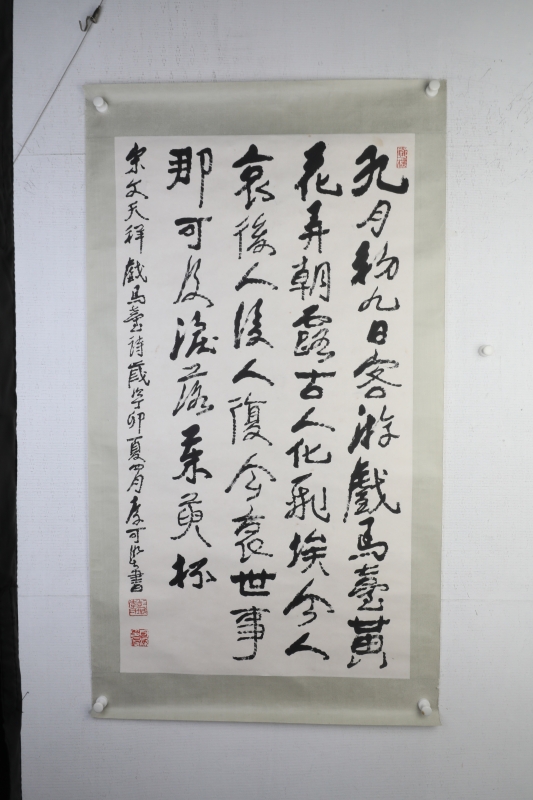 九月初九日客游戲馬臺黃
花弄朝露古人化飛埃今人
哀後人後人復今哀世事
那可及淚落茱萸杯
宋文天祥戲馬臺詩歲丁卯夏四月可書